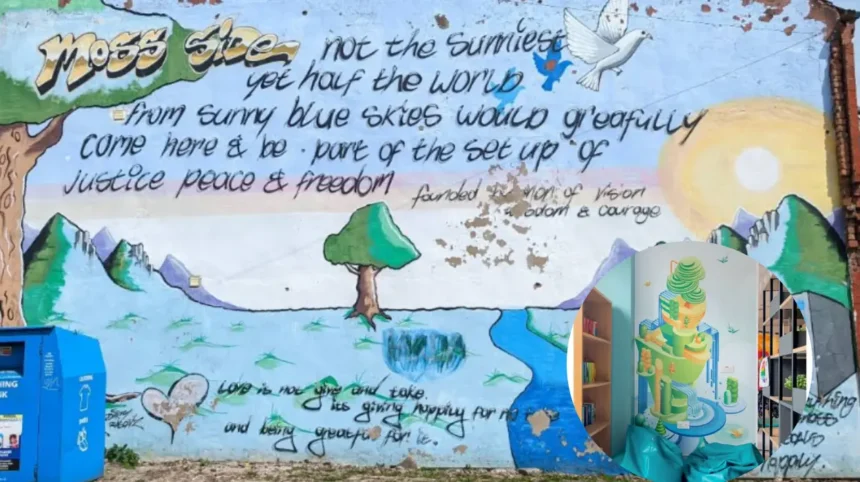 Moss Side not the Sunniest
yet half the world
from Sunny blue skies would greatfully
come here & be part of the set up of
justice peace & freedom
founded of vision
& courage
Love is not give and take.
its giving happily for no
and being greatful for it.
happily.